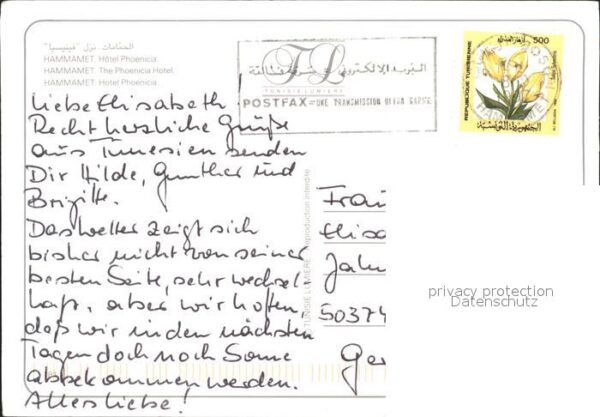 الحمّامات. نزل "فينيسيا"
HAMMAMET. Hôtel Phoenicia
HAMMAMET. The Phoenicia Hotel.
HAMMAMET. Hotel Phoenicia.
TL
TUNISIE LUMIERE
POSTFAX = UNE TRANSMISSION ULTRA RAPIDE
500
REPUBLIQUE TUNISIENNE
الجمهورية التونسية
Liebe Elisabeth.
Recht herzliche Grüße
aus Tunesien senden
Dir Hilde, Gunther und
Brigitte.
Das Wetter zeigt sich
bisher nicht von seiner
besten Seite, sehr wechsel
haft, aber wir hoffen,
daß wir in den nächsten
Tagen doch noch Sonne
abbekommen werden.
Alles Liebe!
© TUNISIE LUMIERE - Reproduction interdite
Frau
Elisa
Jahn
50374
Ger
privacy protection
Datenschutz